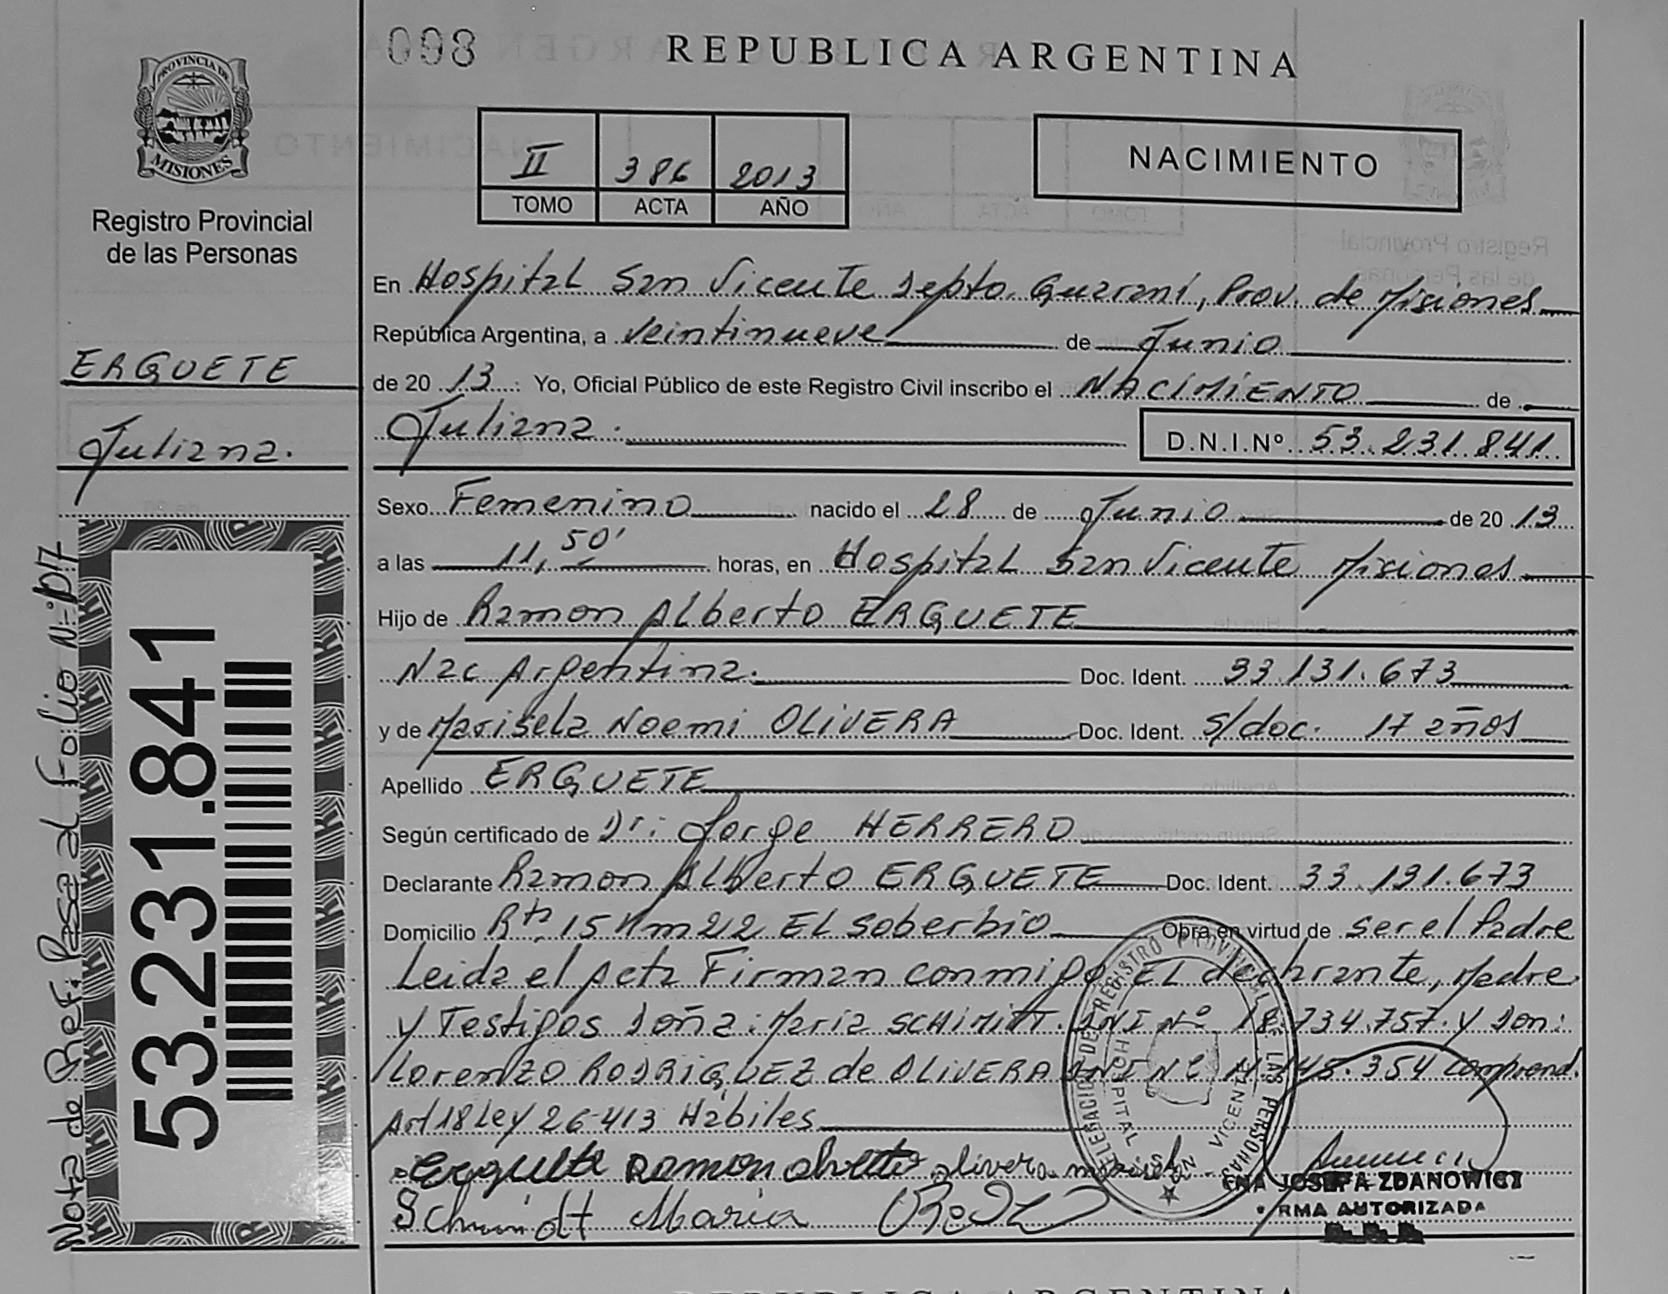 098
REPUBLICA ARGENTINA
PROVINCIA DE
MISIONES
Registro Provincial
de las Personas
II 386 2013
TOMO ACTA AÑO
NACIMIENTO
En Hospital San Vicente Depto. Guaraní, Prov. de Misiones
República Argentina, a veintinueve de Junio
ERGUETE
de 20 13 : Yo, Oficial Público de este Registro Civil inscribo el NACIMIENTO de
Juliana.
Juliana. D.N.I.Nº 53.231.841
Sexo Femenino nacido el 28 de Junio de 20 13
a las 11,50' horas, en Hospital San Vicente Misiones
Hijo de Ramon Alberto ERGUETE
Nac Argentina. Doc. Ident. 33.131.673
y de Marisela Noemi OLIVERA Doc. Ident. s/doc. 17 años
Apellido ERGUETE
Según certificado de Dr: Jorge HERRERO
Declarante Ramon Alberto ERGUETE Doc. Ident. 33.131.673
Domicilio Rta 15 Km 212 EL Soberbio Obra en virtud de ser el Padre
Leida el Acta Firman conmigo EL declarante, Madre
y Testigos Doña: Maria SCHIMITT. DNI Nº 18.734.757. y Don:
Lorenzo RODRIGUEZ de OLIVERA DNI Nº 148.354 comprend.
Art 18 Ley 26.413 Hábiles
Erguete Ramon alverto olivera
Schmidt Maria
JOSEFA ZDANOWICZ
RMA AUTORIZADA
DELEGACION DE REGISTRO PROVINCIAL DE LAS PERSONAS
HOSPITAL VICENTE
53.231.841
Nota de Ref: Pasa al Folio Nº: 017
REPUBLICA ARGENTINA